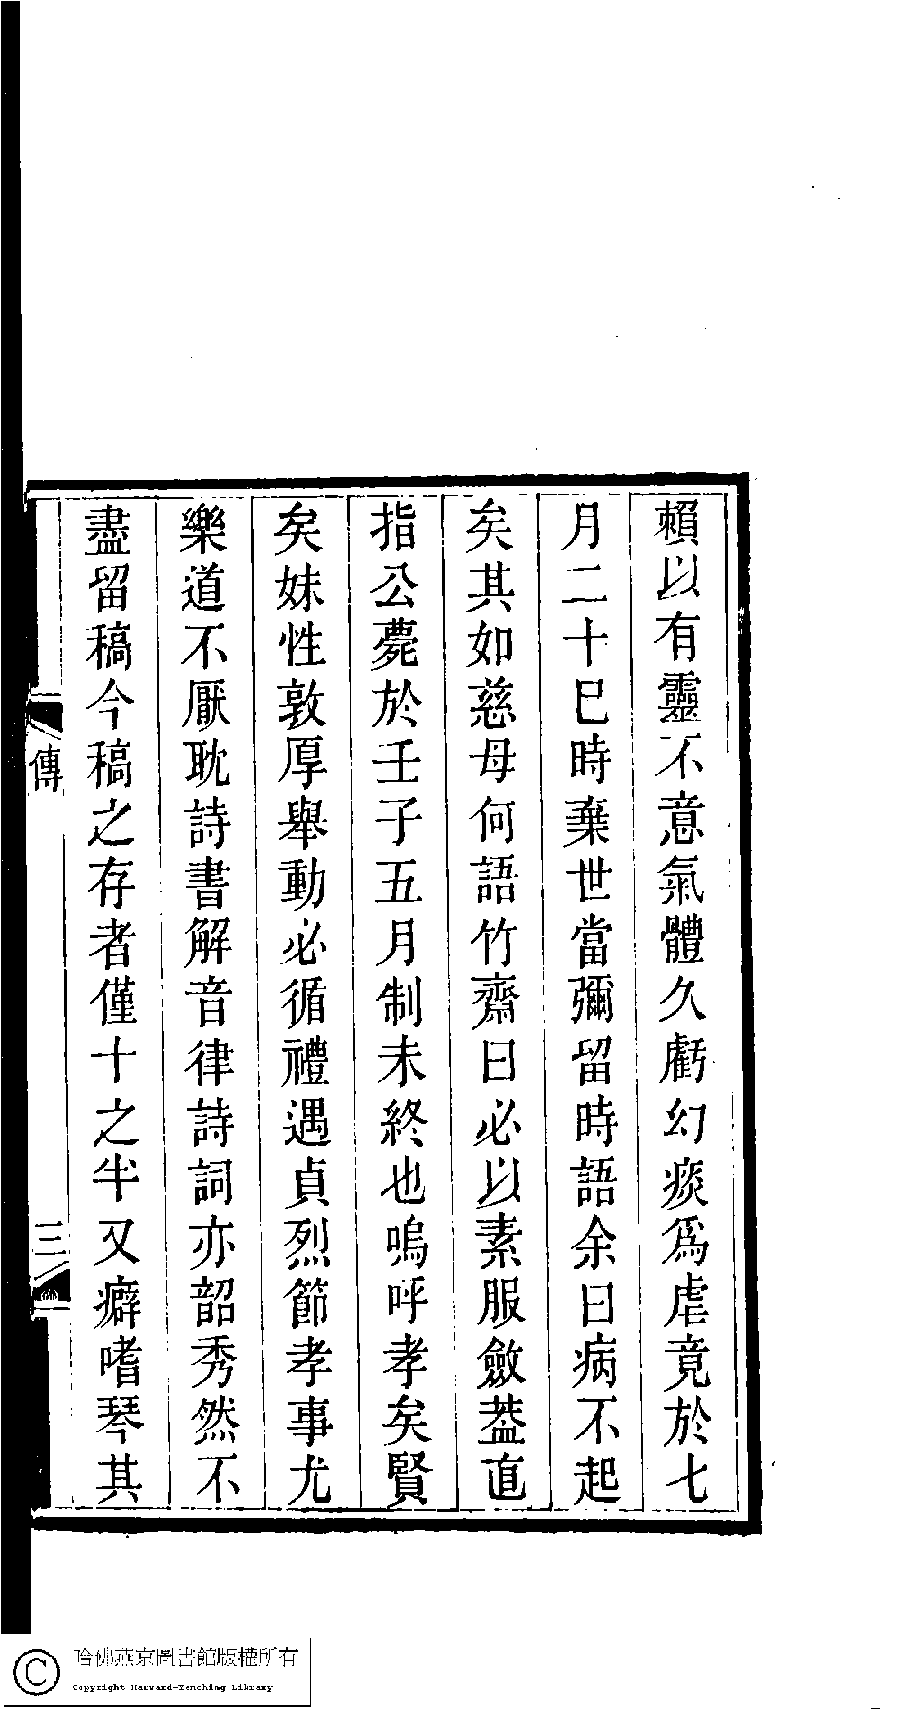 賴以有靈不意氣體久虧幻痰爲虐竟於七
月二十巳時棄世當彌留時語余曰病不起
矣其如慈母何語竹齋曰必以素服斂葢直
指公薨於壬子五月制未終也嗚呼孝矣賢
矣妹性敦厚舉動必循禮遇貞烈節孝事尤
樂道不厭耽詩書解音律詩詞亦韶秀然不
盡留稿今稿之存者僅十之半又癖嗜琴其
傳
三
哈佛燕京圖書館版權所有
Copyright Harvard-Yenching Library